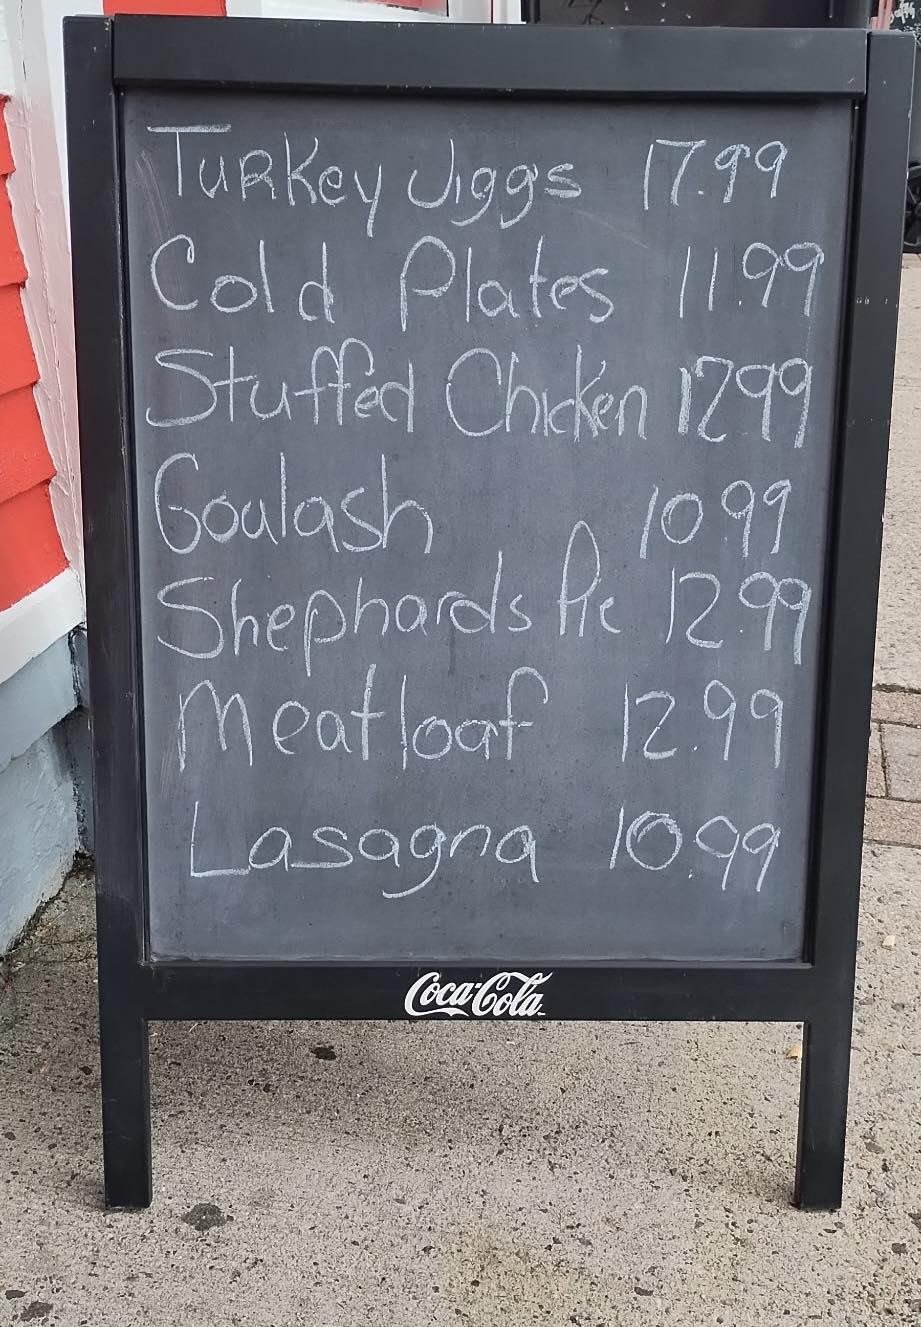 Turkey Jiggs 17.99
Cold Plates 11.99
Stuffed Chicken 1299
Goulash 10 99
Shephards Pie 12.99
Meatloaf 12.99
Lasagna 10.99
Coca-Cola